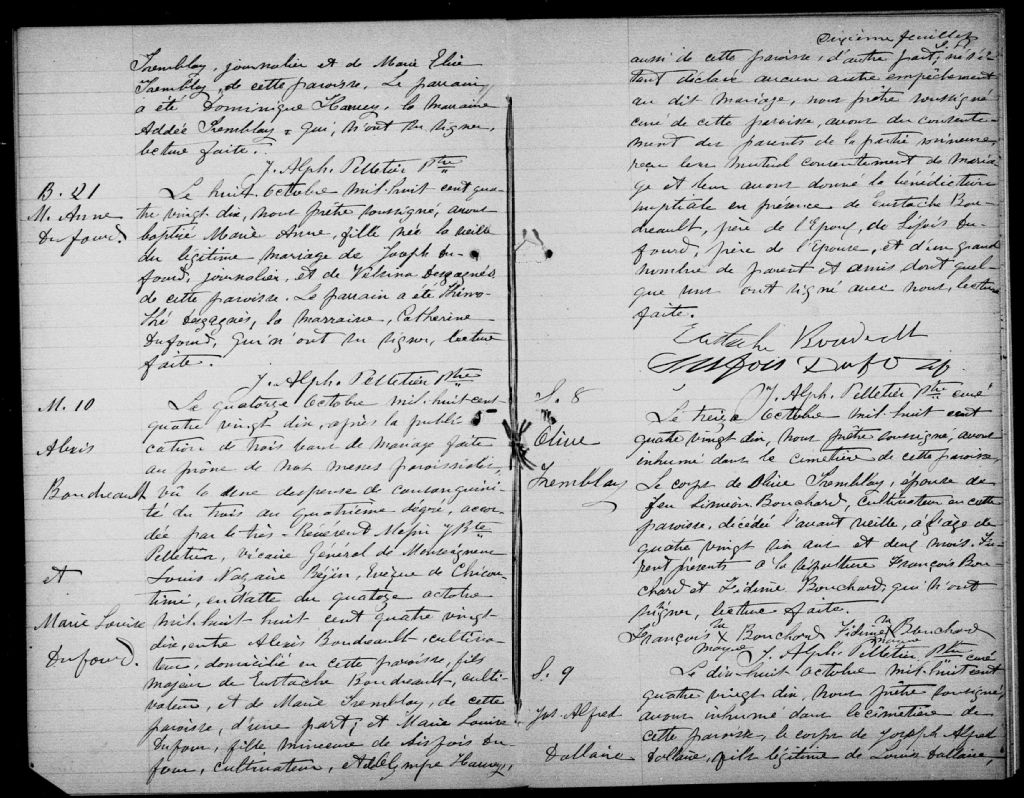 Tremblay, journalier et de Marie Elise
Tremblay, de cette paroisse. Le parrain
a été Dominique Harvey, la marraine
Addée Tremblay qui, n'ont su signer,
lecture faite.
J. Alph. Pelletier Ptre
B. 21
M. Anne
Dufourd.
Le huit Octobre mil-huit cent qua-
tre vingt dix, nous prêtre soussigné, avons
baptisé Marie Anne, fille née la veille
du légitime mariage de Joseph Du-
fourd, journalier, et de Desgagnés
de cette paroisse. Le parrain a été Thimo-
thé Desgagnés, la marraine, Catherine
Dufourd, qui n'ont su signer, lecture
faite.
J. Alph. Pelletier Ptre
M. 10
Alexis
Boudreault
et
Marie Louise
Dufourd.
Le quatorze Octobre mil-huit-cent
quatre vingt dix, après la publi-
cation de trois bans de mariage faite
au prône de nos messes paroissiales,
vû la dispense de consanguini-
té du trois au quatrième degré, accor-
dée par le très-Révérend Messire J Bte
Pelletier, vicaire Général de Monseigneur
Louis Nazaire Bégin, Evêque de Chicou-
timi, en date du quatorze octobre
mil-huit-huit cent quatre vingt-
dix, entre Alexis Boudreault, cultiva-
teur, domicilié en cette paroisse, fils
majeur de Eustache Boudreault, culti-
vateur, et de Marie Tremblay, de cette
paroisse, d'une part; et Marie Louise
Dufour, fille mineure de Du-
four, cultivateur, et d'Olympe Harvey,
Sixième feuillet
aussi de cette paroisse, d'autre part; ne s'é-
tant déclaré aucun autre empêchement
au dit mariage, nous prêtre soussigné
curé de cette paroisse, avons du consente-
ment des parents de la partie mineure,
reçu leur mutuel consentement de maria-
ge et leur avons donné la bénédiction
nuptiale en présence de Eustache Bou-
dreault, père de l'Epoux, de Du-
fourd, père de l'Epouse, et d'un grand
nombre de parent et amis dont quel-
que uns ont signé avec nous, lecture
faite.
Eustache
J. Alph. Pelletier Ptre curé
S. 8
Elise
Tremblay
Le treize Octobre mil-huit cent
quatre vingt dix, nous prêtre soussigné, avons
inhumé dans le cimetière de cette paroisse
le corps de Elise Tremblay, épouse de
feu Siméon Bouchard, cultivateur en cette
paroisse, décédée l'avant veille, à l'âge de
quatre vingt ans et deux mois. Fu-
rent présents à la sépulture François Bou-
chard et Bouchard, qui n'ont
signer, lecture faite.
François X Bouchard X Bouchard
J. Alph. Pelletier Ptre curé
S. 9
Jos Alfred
Dallaire
Le dix-huit octobre mil-huit cent
quatre vingt dix, nous prêtre soussigné,
avons inhumé dans le cimetière de
cette paroisse, le corps de Joseph Alfred
Dallaire, fils légitime de Louis Dallaire,